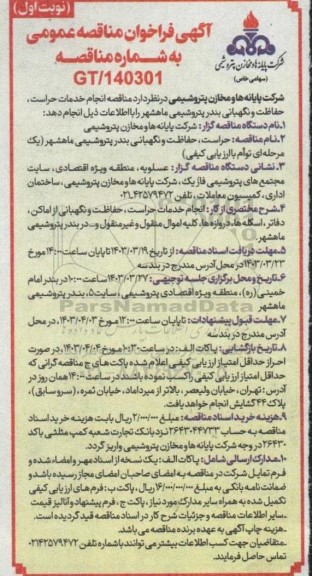 (نوبت اول)
آگهی فراخوان مناقصه عمومی
به شماره مناقصه
GT/140301
شرکت پایانه ها و مخازن پتروشیمی
(سهامی خاص)
شرکت پایانه ها و مخازن پتروشیمی در نظر دارد مناقصه انجام خدمات حراست،
حفاظت و نگهبانی بندر پتروشیمی ماهشهر را با اطلاعات ذیل انجام دهد:
۱.نام دستگاه مناقصه گزار: شرکت پایانه ها و مخازن پتروشیمی
۲.نام مناقصه: حراست، حفاظت و نگهبانی بندر پتروشیمی ماهشهر (یک
مرحله ای توأم با ارزیابی کیفی)
۳. نشانی دستگاه مناقصه گزار: عسلویه، منطقه ویژه اقتصادی، سایت
مجتمع های پتروشیمی فاز یک، شرکت پایانه ها و مخازن پتروشیمی، ساختمان
اداری، کمیسیون معاملات، تلفن ۰۲۱۴۲۵۷۹۴۷۲
۴.شرح مختصری از کار: انجام خدمات حراست، حفاظت و نگهبانی از اماکن،
دفاتر، اسکله ها، دروازه ها، کلیه اموال منقول و غیرمنقول و... در بندر پتروشیمی
ماهشهر
۵.مهلت دریافت اسناد مناقصه: از تاریخ ۱۴۰۳/۰۳/۱۹ تا پایان ساعت ۱۴:۰۰ مورخ
۱۴۰۳/۰۳/۲۳ در محل آدرس مندرج در بند سه
۶.تاریخ و محل برگزاری جلسه توجیهی: ۱۴۰۳/۰۳/۲۷ ساعت ۱۰:۰۰ در بندر امام
خمینی (ره)، منطقه ویژه اقتصادی پتروشیمی، سایت ۵، بندر پتروشیمی
ماهشهر
۷.مهلت قبول پیشنهادات: تا پایان ساعت ۱۳:۰۰ مورخ ۱۴۰۳/۰۴/۰۳، در محل
آدرس مندرج در بند سه
۸.تاریخ بازگشایی: پاکات الف: در ساعت ۱۰:۳۰ مورخ ۱۴۰۳/۰۴/۰۴، در صورت
احراز حداقل امتیاز ارزیابی کیفی اعلام شده پاکت های ج مناقصه گرانی که
حداقل امتیاز ارزیابی کیفی را کسب نموده باشند در ساعت ۱۴:۰۰ همان روز در
آدرس: تهران، خیابان ولیعصر، بالاتر از میرداماد، خیابان ثمره، (سرو سابق)،
پلاک ۴۴ گشایش انجام خواهد یافت.
۹.هزینه خرید اسناد مناقصه: مبلغ ۲/۰۰۰/۰۰۰ ریال بابت هزینه خرید اسناد
مناقصه به حساب ۲۶۴۳۰۴۴۷۳۳ نزد بانک تجارت شعبه کمپ مثلثی با کد
۲۶۴۳۰ در وجه شرکت پایانه ها و مخازن پتروشیمی واریز گردد.
۱۰.مدارک ارسالی شامل: پاکات الف: یک نسخه از اسناد مهر و امضاء شده و
فرم تمایل شرکت در مناقصه به امضای صاحبان امضای مجاز رسیده باشد و
ضمانت نامه بانکی به مبلغ ۱۶/۰۰۰/۰۰۰/۰۰۰ ریال، پاکت ب: فرم های ارزیابی کیفی
تکمیل شده به همراه سایر مدارک مورد نیاز، پاکت ج، فرم پیشنهاد و آنالیز قیمت
.سایر اطلاعات مناقصه و جزئیات شرح کار در اسناد مناقصه قید گردیده است.
.هزینه چاپ آگهی به عهده برنده مناقصه می باشد.
.متقاضیان جهت کسب اطلاعات بیشتر می توانند با شماره تلفن ۰۲۱۴۲۵۷۹۴۷۲
تماس حاصل فرمایند.